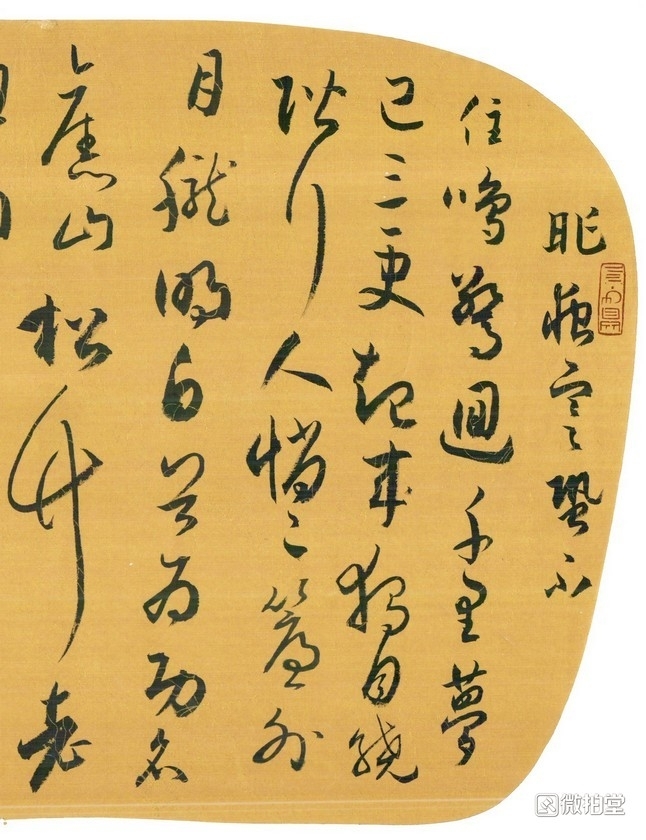 昨夜寒蛩不
住鳴驚迴千里夢
已三更起來獨自繞
階行人悄〻簾外
月朧明白首為功名
舊山松竹老
微拍堂